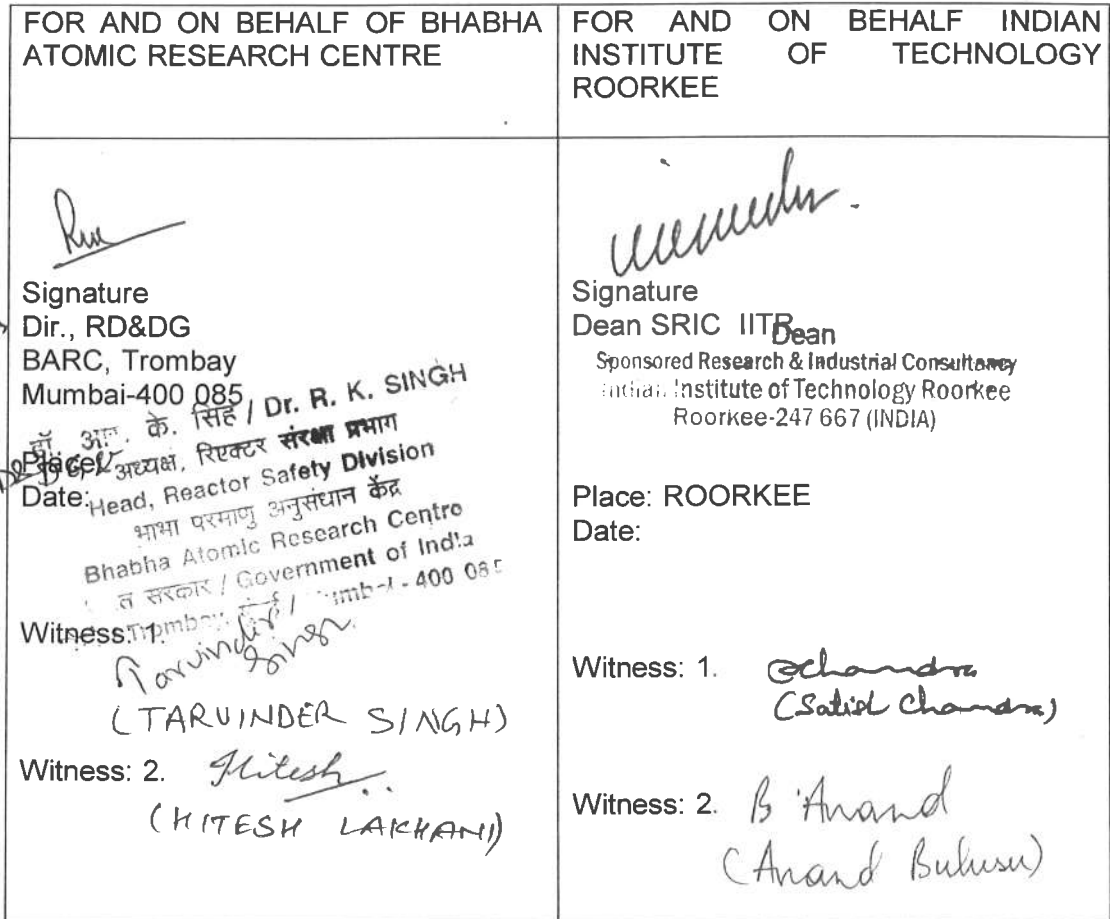 FOR AND ON BEHALF OF BHABHA
ATOMIC RESEARCH CENTRE
Signature
Dir., RD&DG
BARC, Trombay
Mumbai-400 085
डॉ. आर. के. सिंह / Dr. R. K. SINGH
अध्यक्ष, रिएक्टर संरक्षा प्रभाग
Head, Reactor Safety Division
भाभा परमाणु अनुसंधान केंद्र
Bhabha Atomic Research Centre
सरकार / Government of India
400 085
Place:
Date:
Witness: 1.
Tarvinder
Singh
(TARVINDER SINGH)
Witness: 2. Hitesh
(HITESH LAKHANI)
FOR AND ON BEHALF INDIAN
INSTITUTE OF TECHNOLOGY
ROORKEE
Signature
Dean SRIC IITR
Dean
Sponsored Research & Industrial Consultancy
Indian Institute of Technology Roorkee
Roorkee-247 667 (INDIA)
Place: ROORKEE
Date:
Witness: 1. Schandra
(Satish Chandra)
Witness: 2. B Anand
(Anand Bulusu)